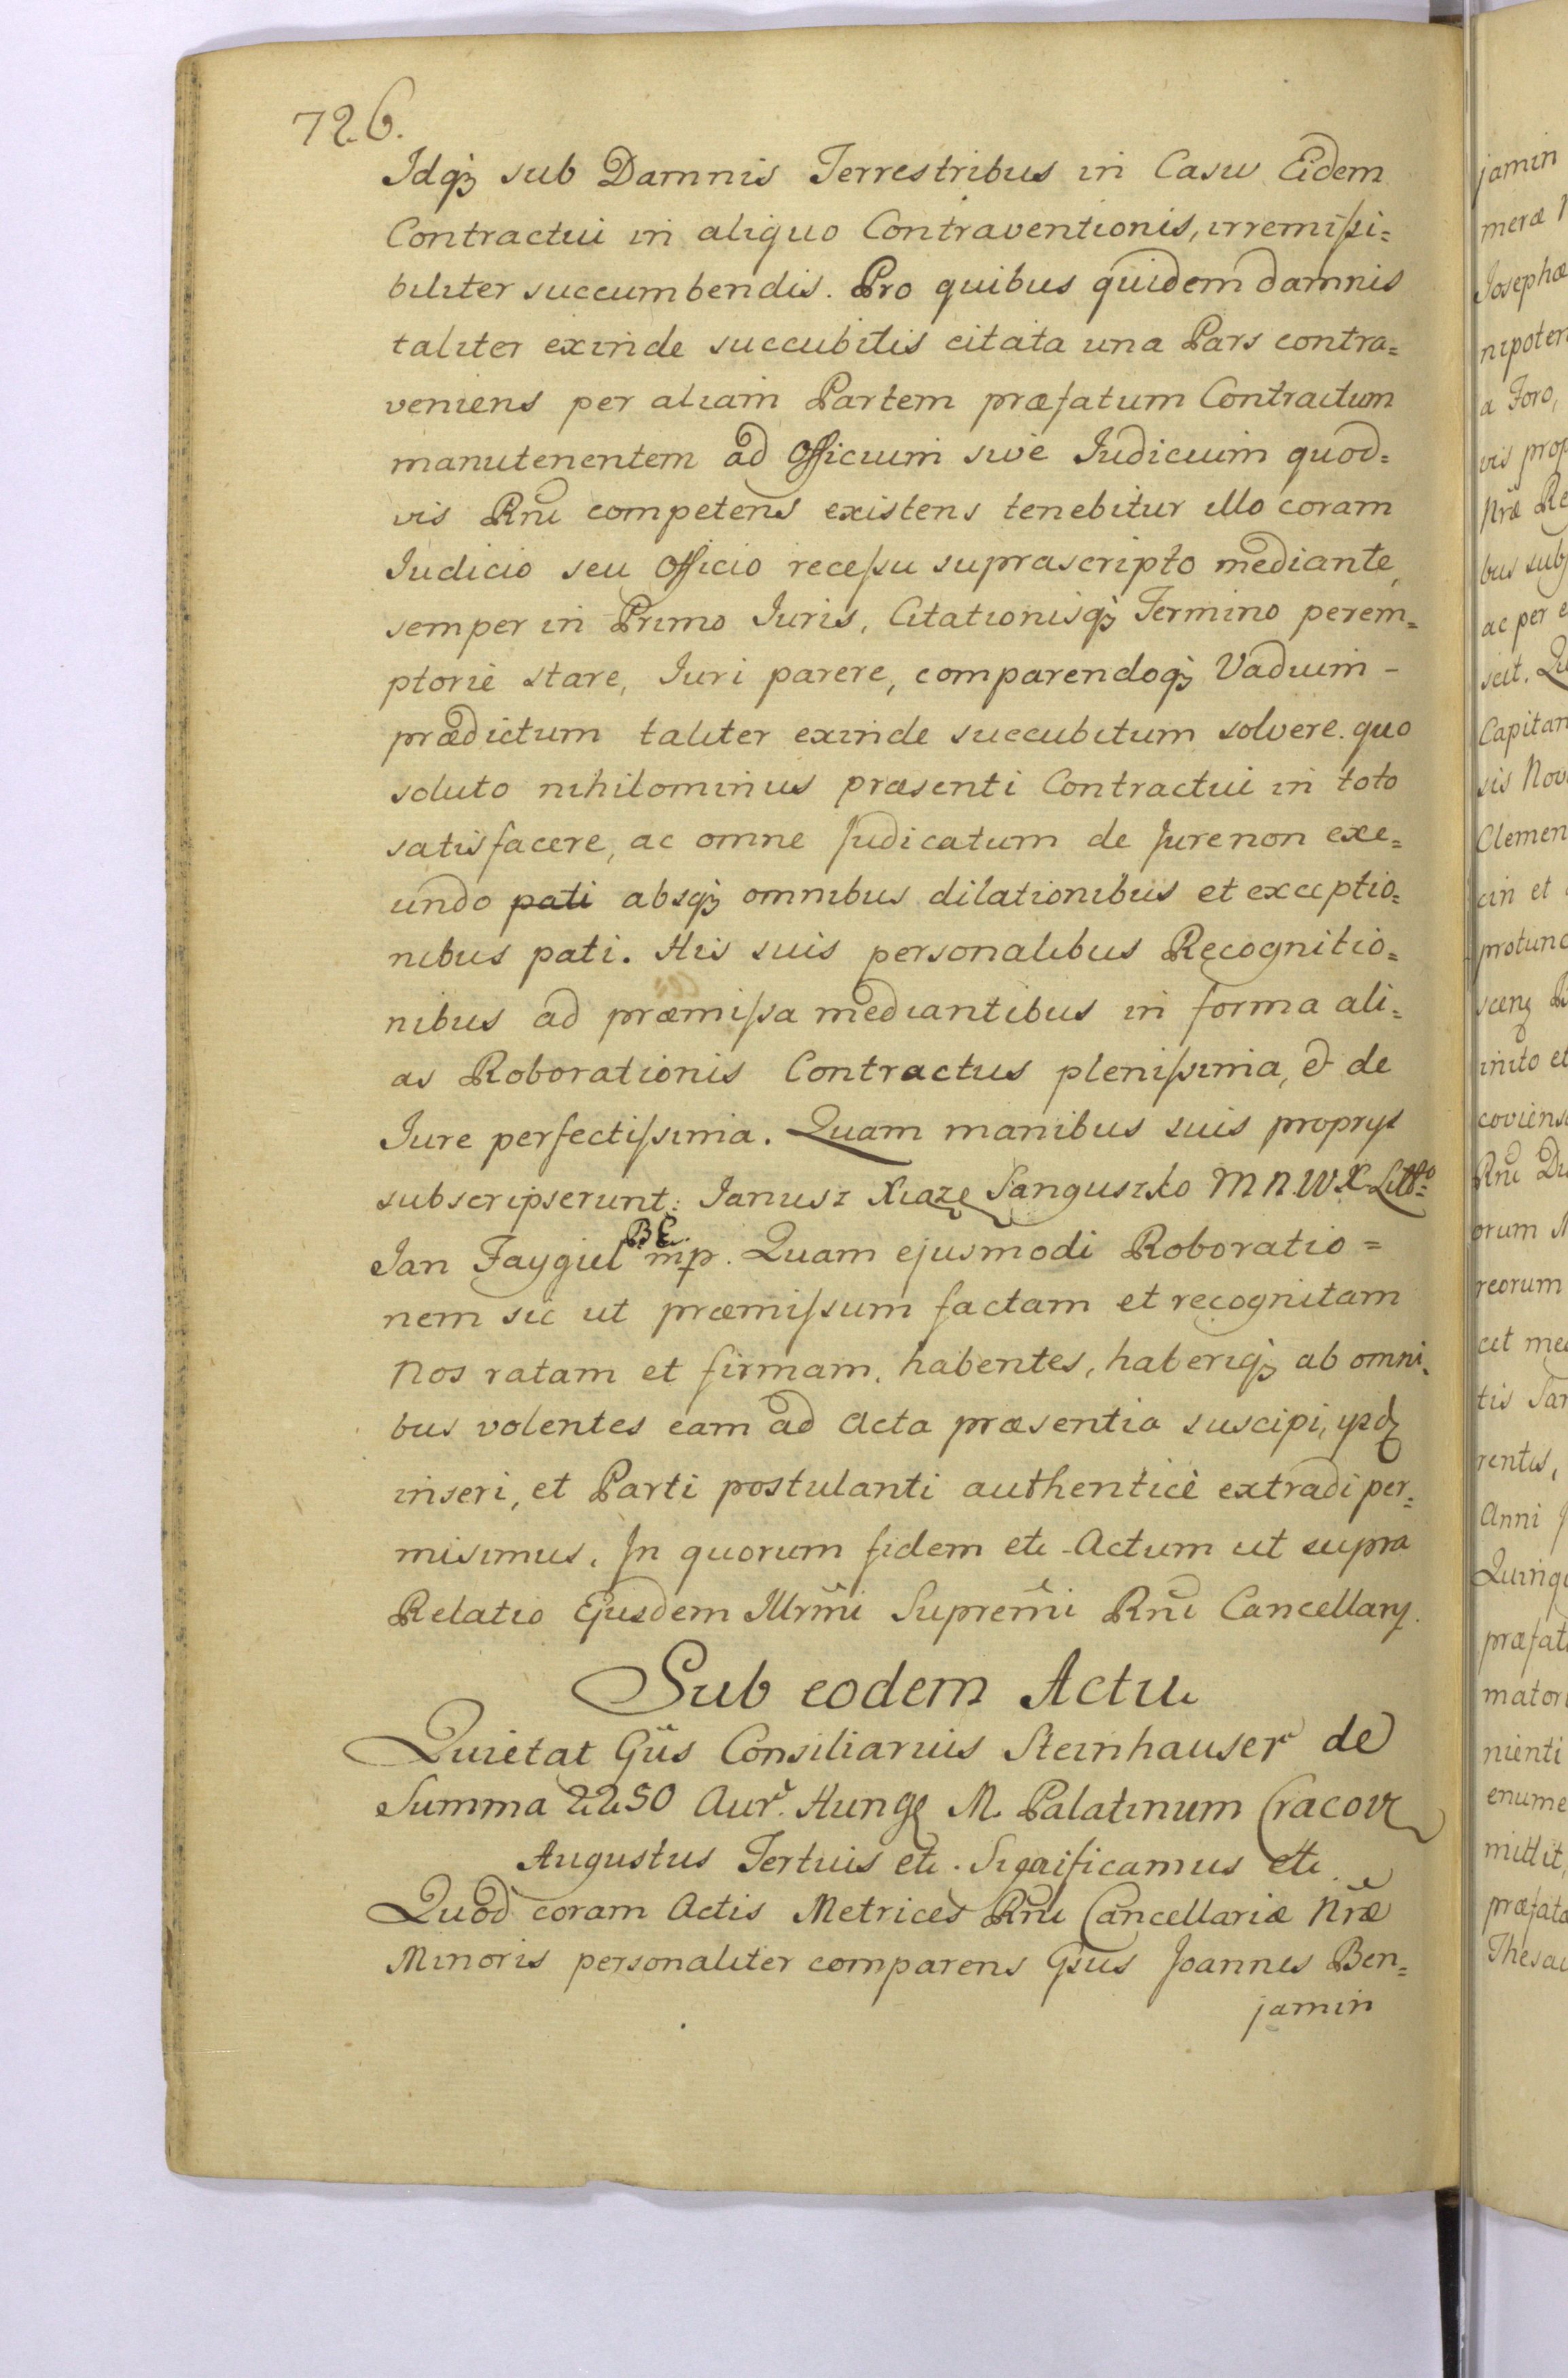 726.
Idqꝫ sub Damnis Terrestribus in Casu Eidem
Contractui in aliquo Contraventionis, irremiſsi=
biliter succumbendis. Pro quibus quidem damnis
taliter exinde succubitis citata una Pars contra=
veniens per aliam Partem præfatum Contractum
manutenentem ad Officium sivè Iudicium quod=
vis Rñi competens existens tenebitur illo coram
Iudicio seu Officio receſsu suprascripto mediante,
semper in Primo Iuris, Citationisqꝫ Termino perem=
ptoriè stare, Iuri parere, comparendoqꝫ Vadium -
prædictum taliter exinde succubitum solvere. quo
soluto nihilominus præsenti Contractui in toto
satisfacere, ac omne Judicatum de Jure non exe=
undo pati absqꝫ omnibus dilationibus et exceptio=
nibus pati. His suis personalibus Recognitio=
nibus ad præmiſsa mediantibus in forma ali=
as Roborationis Contractus pleniſsima, & de
Iure perfectiſsima. Quam manibus suis proprys
subscripserunt: Ianusz Xiazę Sanguszko M N W X Litto
Ian Faygiel BC. mp. Quam ejusmodi Roboratio=
nem sic ut præmiſsum factam et recognitam
Nos ratam et firmam, habentes, haberiqꝫ ab omni=
bus volentes eam ad Acta præsentia suscipi, ysdꝫ
inseri, et Parti postulanti authenticè extradi per=
misimus. In quorum fidem etc Actum ut supra
Relatio Ejusdem Illrm̃i Suprem̃i Rñi Cancellary.
Sub eodem Actu
Quietat Gñs Consiliarius Steinhauser de
Summa 2250 Aur. Hung M. Palatinum Cracov
Augustus Tertius etc. Significamus etc
Quod coram Actis Metrices Rñi Cancellariæ Nr̃æ
Minoris personaliter comparens Gsus Joannes Ben=
jamin
jamin
meræ
Josephæ
nipoten
a Foro,
vis prop
Nr̃æ Re
bus subs
ac per e
scit. Qu
Capitan
sis Nov
Clemen
cin et
protunc
inito et
coviens
Rñi Du
orum
reorum
cit med
tis San
rentis,
Anni
Quinqu
præfat
mator
nienti
enume
mittit,
præfata
Thesau